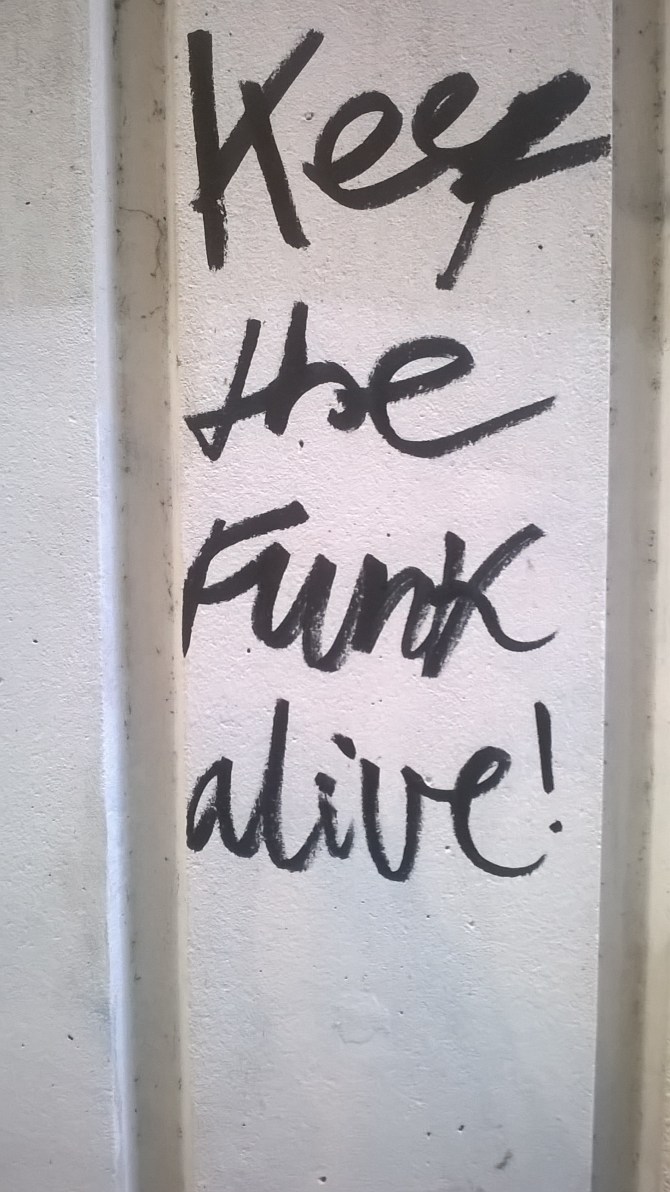 Keep
the
Funk
alive!